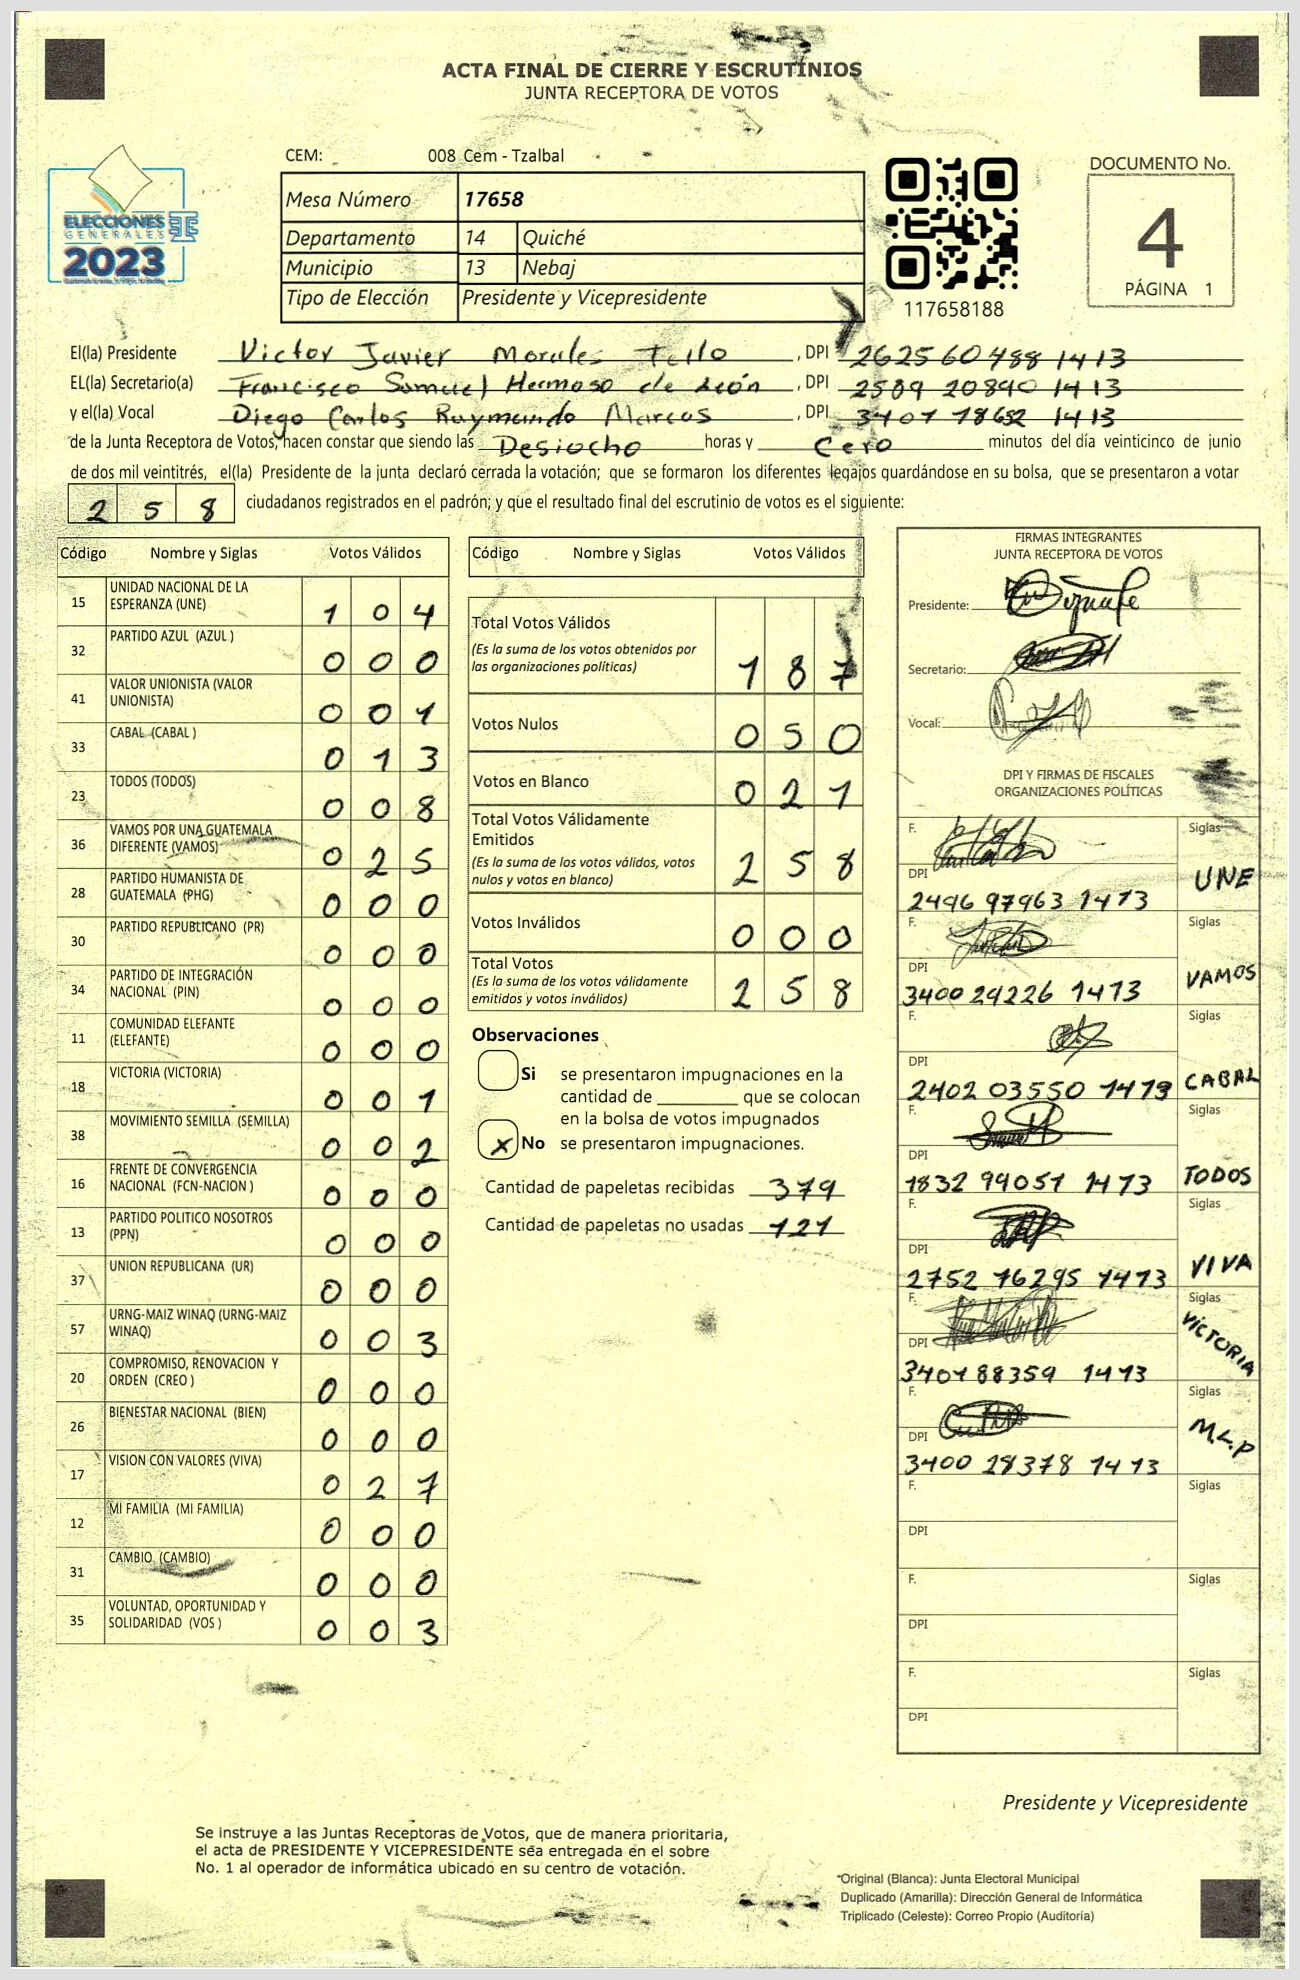 ACTA FINAL DE CIERRE Y ESCRUTINIOS
JUNTA RECEPTORA DE VOTOS
CEM: 008 Cem - Tzalbal
DOCUMENTO No.
4
PÁGINA 1
ELECCIONES
GENERALES
2023
Mesa Número 17658
Departamento 14 Quiché
Municipio 13 Nebaj
Tipo de Elección Presidente y Vicepresidente
117658188
El(la) Presidente Victor Javier Morales Tello , DPI 2625 60488 1413
EL(la) Secretario(a) Francisco Samuel Hermoso de León , DPI 2589 20890 1413
y el(la) Vocal Diego Carlos Raymundo Marcos , DPI 3407 78652 1413
de la Junta Receptora de Votos, hacen constar que siendo las Desiocho horas y Cero minutos del día veinticinco de junio
de dos mil veintitrés, el(la) Presidente de la junta declaró cerrada la votación; que se formaron los diferentes legajos guardándose en su bolsa, que se presentaron a votar
2 5 8 ciudadanos registrados en el padrón; y que el resultado final del escrutinio de votos es el siguiente:
Código Nombre y Siglas Votos Válidos
15 UNIDAD NACIONAL DE LA ESPERANZA (UNE) 1 0 4
32 PARTIDO AZUL (AZUL ) 0 0 0
41 VALOR UNIONISTA (VALOR UNIONISTA) 0 0 1
33 CABAL (CABAL ) 0 1 3
23 TODOS (TODOS) 0 0 8
36 VAMOS POR UNA GUATEMALA DIFERENTE (VAMOS) 0 2 5
28 PARTIDO HUMANISTA DE GUATEMALA (PHG) 0 0 0
30 PARTIDO REPUBLICANO (PR) 0 0 0
34 PARTIDO DE INTEGRACIÓN NACIONAL (PIN) 0 0 0
11 COMUNIDAD ELEFANTE (ELEFANTE) 0 0 0
18 VICTORIA (VICTORIA) 0 0 1
38 MOVIMIENTO SEMILLA (SEMILLA) 0 0 2
16 FRENTE DE CONVERGENCIA NACIONAL (FCN-NACION ) 0 0 0
13 PARTIDO POLITICO NOSOTROS (PPN) 0 0 0
37 UNION REPUBLICANA (UR) 0 0 0
57 URNG-MAIZ WINAQ (URNG-MAIZ WINAQ) 0 0 3
20 COMPROMISO, RENOVACION Y ORDEN (CREO ) 0 0 0
26 BIENESTAR NACIONAL (BIEN) 0 0 0
17 VISION CON VALORES (VIVA) 0 2 7
12 MI FAMILIA (MI FAMILIA) 0 0 0
31 CAMBIO (CAMBIO) 0 0 0
35 VOLUNTAD, OPORTUNIDAD Y SOLIDARIDAD (VOS ) 0 0 3
Código Nombre y Siglas Votos Válidos
Total Votos Válidos
(Es la suma de los votos obtenidos por
las organizaciones políticas) 1 8 7
Votos Nulos 0 5 0
Votos en Blanco 0 2 1
Total Votos Válidamente
Emitidos
(Es la suma de los votos válidos, votos
nulos y votos en blanco) 2 5 8
Votos Inválidos 0 0 0
Total Votos
(Es la suma de los votos válidamente
emitidos y votos inválidos) 2 5 8
Observaciones
Si se presentaron impugnaciones en la
cantidad de ________ que se colocan
en la bolsa de votos impugnados
x No se presentaron impugnaciones.
Cantidad de papeletas recibidas 379
Cantidad de papeletas no usadas 121
FIRMAS INTEGRANTES
JUNTA RECEPTORA DE VOTOS
Presidente:
Secretario:
Vocal:
DPI Y FIRMAS DE FISCALES
ORGANIZACIONES POLÍTICAS
F. Siglas
DPI 2496 97963 1413 UNE
F. Siglas
DPI 3400 29226 1413 VAMOS
F. Siglas
DPI 2402 03550 1413 CABAL
F. Siglas
DPI 1832 99051 1413 TODOS
F. Siglas
DPI 2752 76295 1413 VIVA
F. Siglas
DPI 3401 88359 1413 VICTORIA
F. Siglas
DPI 3400 28378 1413 M.L.P
F. Siglas
DPI
F. Siglas
DPI
F. Siglas
DPI
Presidente y Vicepresidente
Se instruye a las Juntas Receptoras de Votos, que de manera prioritaria,
el acta de PRESIDENTE Y VICEPRESIDENTE sea entregada en el sobre
No. 1 al operador de informática ubicado en su centro de votación.
*Original (Blanca): Junta Electoral Municipal
Duplicado (Amarilla): Dirección General de Informática
Triplicado (Celeste): Correo Propio (Auditoría)